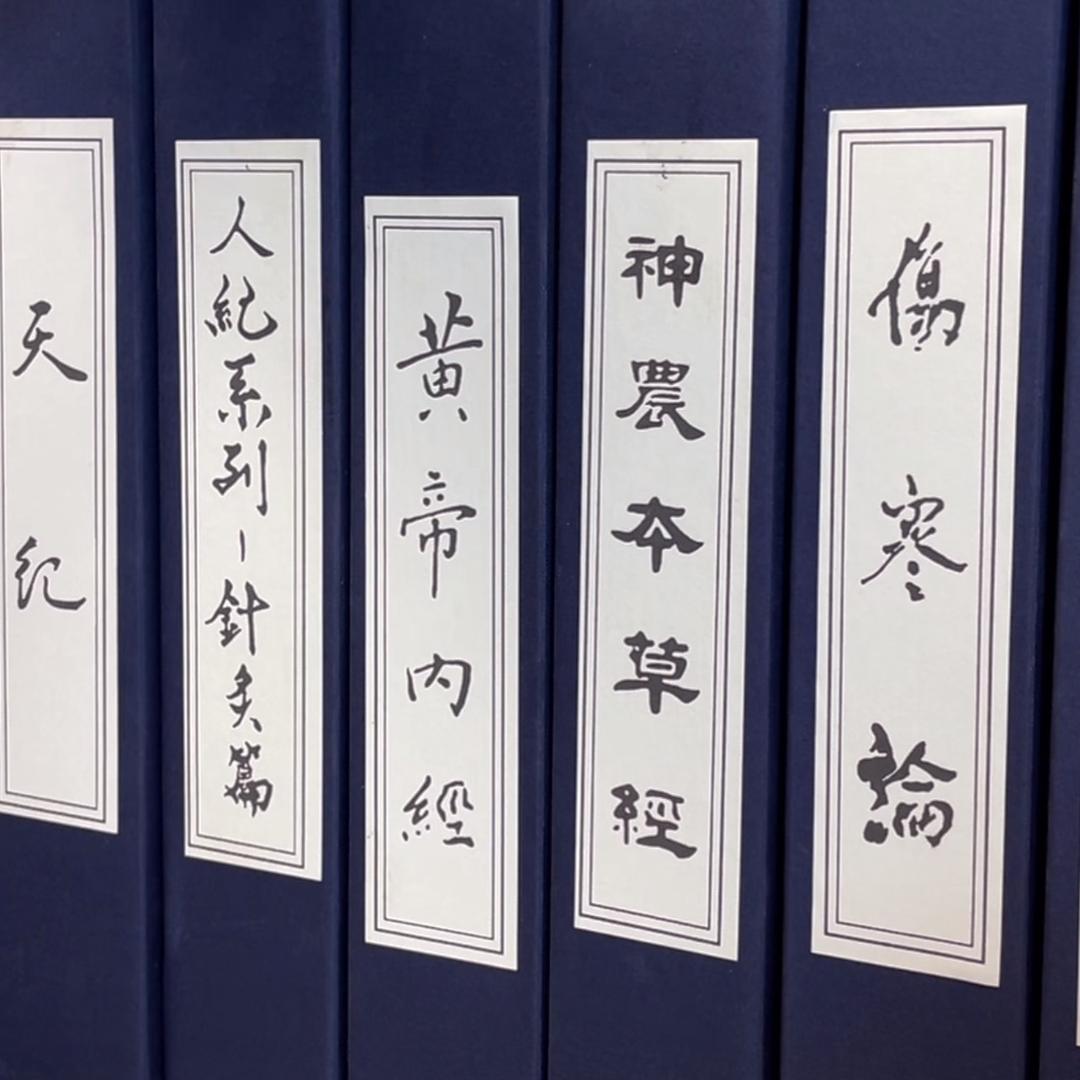 天紀
人紀系列-針灸篇
黃帝內經
神農本草經
傷寒論